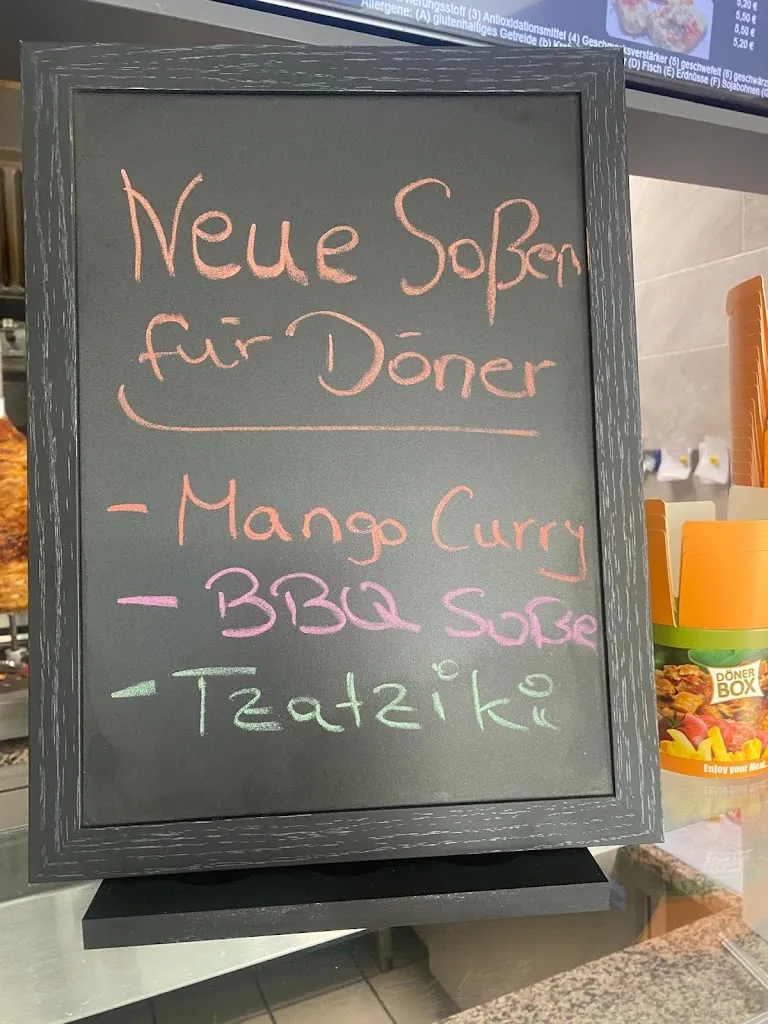 rvierungsstoff (3) Antioxidationsmittel (4) Geschmacksverstärker (5) geschwefelt (6) geschwärz
Allergene: (A) glutenhaltiges Getreide (b) (D) Fisch (E) Erdnüsse (F) Sojabohnen (G
5,20 €
5,50 €
5,50 €
5,20 €
Neue Soßen
für Döner
- Mango Curry
- BBQ Soße
- Tzatziki
DÖNER
BOX
Enjoy your Meal